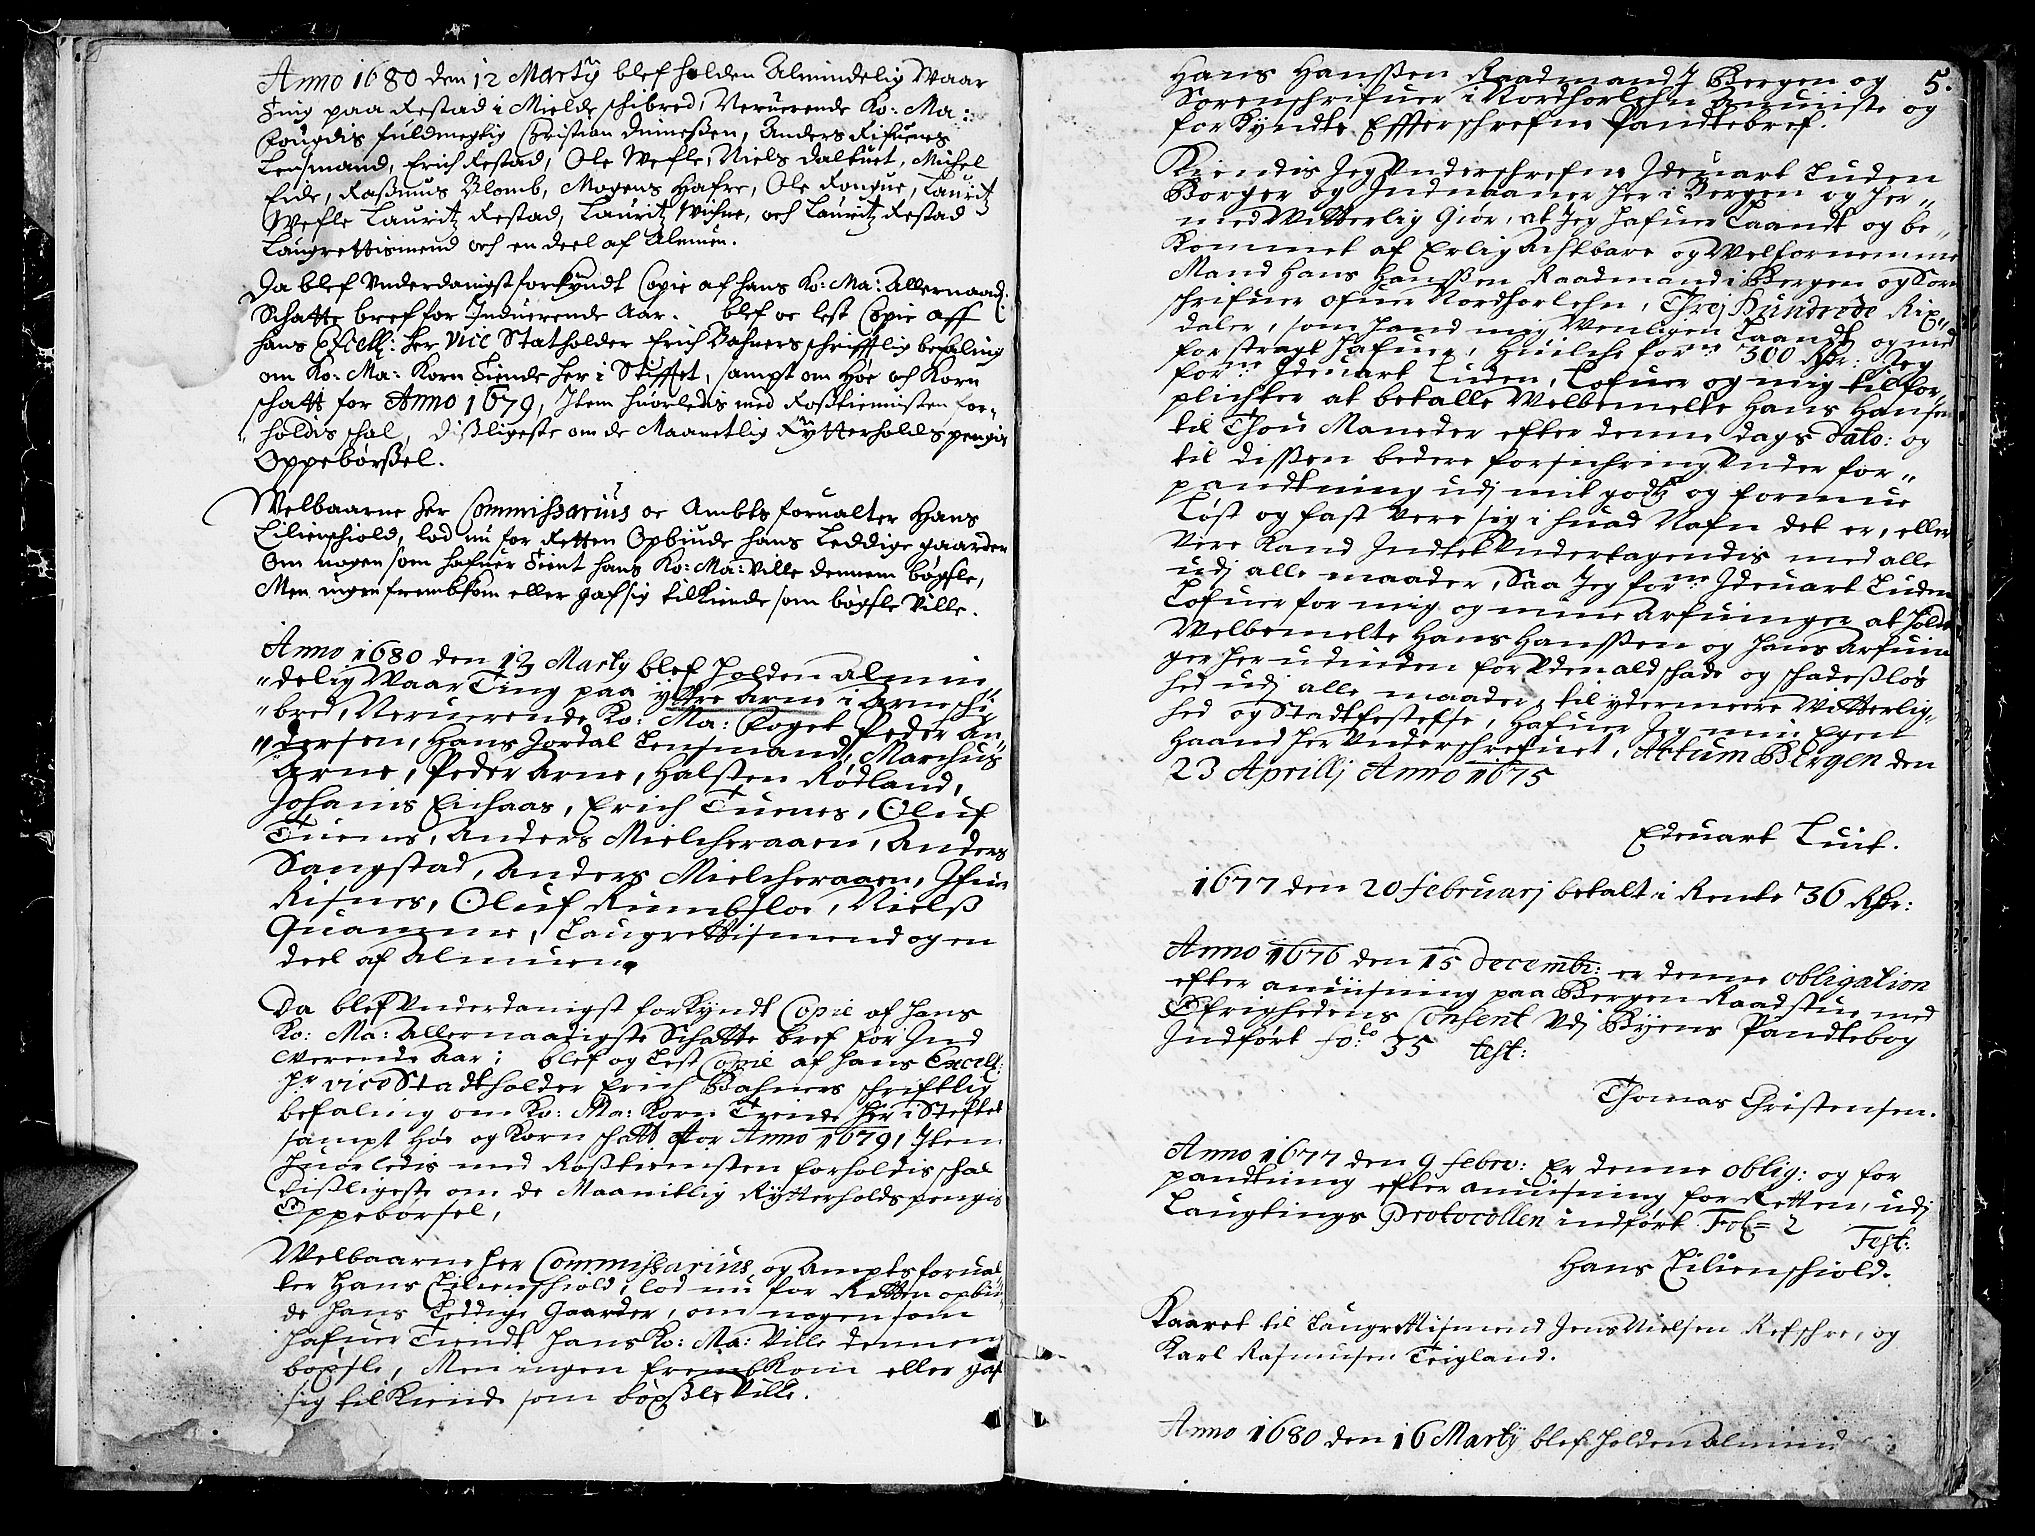 Anno 1680 den 12 Martÿ blef holden Almindelig Waar
Ting paa Restad i Mielde schibred, Neruerende Ko: Ma:
Fougdis fuldmegtig Christian Anders Rifuenes
Lensmand, Erich Restad, Ole Wefle, Niels Daltuet, Michel
Eide, Rasmus Blomb, Mogens Hafre, Ole Rongue, Lauritz
Wefle Lauritz Restad, Lauritz och Lauritz Restad
Laugrettismend och en deel af Almuen.
Da blef Vnderdanigst forkÿndt Copie af hans Ko: Ma: Allernaad:
Schatte bref for Induerende Aar. blef oc lest Copie aff
hans Excell: Her Vice Statholder Erich Bahners schrifftlig befaling
om Ko: Ma: Korn Tiende her i Stifftet, sampt om Høe och Korn
schatt for Anno 1679, Item huorledis med Rostienisten for„
„holdis schal, Disligeste om de Maanetlig Rÿtterholds pengis
Oppebørßel.
Welbaarne Her Commissarius oc Ambts forualter Hans
Lilienschiold, lod nu for Retten Opbiude hans Leddige gaarder
Om nogen som hafuer Tient hans Ko: Ma: Ville dennem bøgsle,
Men ingen frembkom eller gaf sig tilkiende som bøgsle Ville.
Anno 1680 den 13 Martÿ blef holden Almin„
„delig Waar Ting paa ÿttre Arne i Arne schi„
„bred, Neruerende Ko: Ma: Foget Peder An„
„dersen, Hans Jordal Lensmand, Marchus
Arne, Peder Arne, Halsten Rødland,
Johanis Eichaas, Erich Tuenes, Oluf
Tuenes, Anders Mielcheraaen, Anders
Sangstad, Anders Mielcheraaen,
Risnes, Oluf Rumbsloe, Nielß
Quamme, Laugrettismend og en
deel af Almuen.
Da blef Vnderdanigst forkÿndt Copie af hans
Ko: Ma: Allernaadigste Schatte bref for Ind
Werende Aar; blef og lest Copie af hans Excell:
Hr vice Stadtholder Erich Bahners schriftlig
befaling om Ko: Ma: Korn Tiende her i Stiftet
sampt Høe og Korn schatt for Anno 1679, Item
huorledis med Roßtienisten forholdis schal
Dißligeste om de Maanitlig Rÿtterholds pengis
Oppebørsel,
Welbaarne Her Commissarius og Ampts forual„
ter Hans Lilienschiold, lod nu for Retten opbiu„
de hans Leddige Gaarder, om nogen som
hafuer Tiendt hans Ko: Ma: Ville dennem
bøxsle, Men ingen frembkom eller gaf
sig tilkiende som bøxßle Ville.
5.
Hans Hanßen Raadmand J Bergen og
Sorenschrifuer i Nordhorlehn Anuiste og
forkÿndte Effterschrefne Pandtebref.
Kiendis Jeg Vnderschrefne Ideuart Luden
Borger og Indvaaner her i Bergen og her„
med Witterlig Giør, at Jeg hafuer Laandt og be„
kommet af Erlig Achtbare og Welfornemme
Mand Hans Hanßen Raadmand i Bergen og Soren
schrifuer ofuer Nordhorlehn, Threj Hundrede Rix„
daler, som hand mig Venligen Laandt og med
forstragt hafuer, huilche forne 300 Rdr: Jeg
forne Ideuart Luden, Lofuer og mig tilfor„
plichter at betalle Welbemelte Hans Hansen
til Thou Maneder efter denne dags dato: og
til dissen bedere forsichring Vnder for„
pandtning udj mit godtz og formue
Løst og fast Vere sig i huad Nafn det er, eller
Vere kand Indtet Vndertagendis med alle
udj alle maader, Saa Jeg forne Ideuart Luden
Lofuer for mig og mine Arfuinger at holde
Welbemelte Hans Hanßen og hans Arfuin
ger her udinden for Vden ald schade og schadeßløs
hed udj alle maader, til ydermeere Vitterlig„
hed og Stadtfestelse, hafuer Jeg min Egen
Haand her Vnderschrefuet. Actum Bergen den
23 Aprillj Anno 1675
Edeuart Luit.
1677 den 20 februarj betalt i Rente 36 Rdr:
Anno 1676 den 15 Decembr: er denne obligation
efter anuisning paa Bergen Raadstue med
Øfrighedens Consent Vdj Bÿens Pandtebog
Indført fo: 35 test:
Thomas Christensen.
Anno 1677 den 9 febrv: Er denne oblig: og for
pandtning efter anuisning for Retten, udj
Laugtings Protocollen indført Fol= 2
Test:
Hans Lilienschiold.
Kaaret til Laugrettismend Jens Nielsen Refschre, og
Karl Rasmusen Teigland.
Anno 1680 den 16 Martÿ blef holden Almind